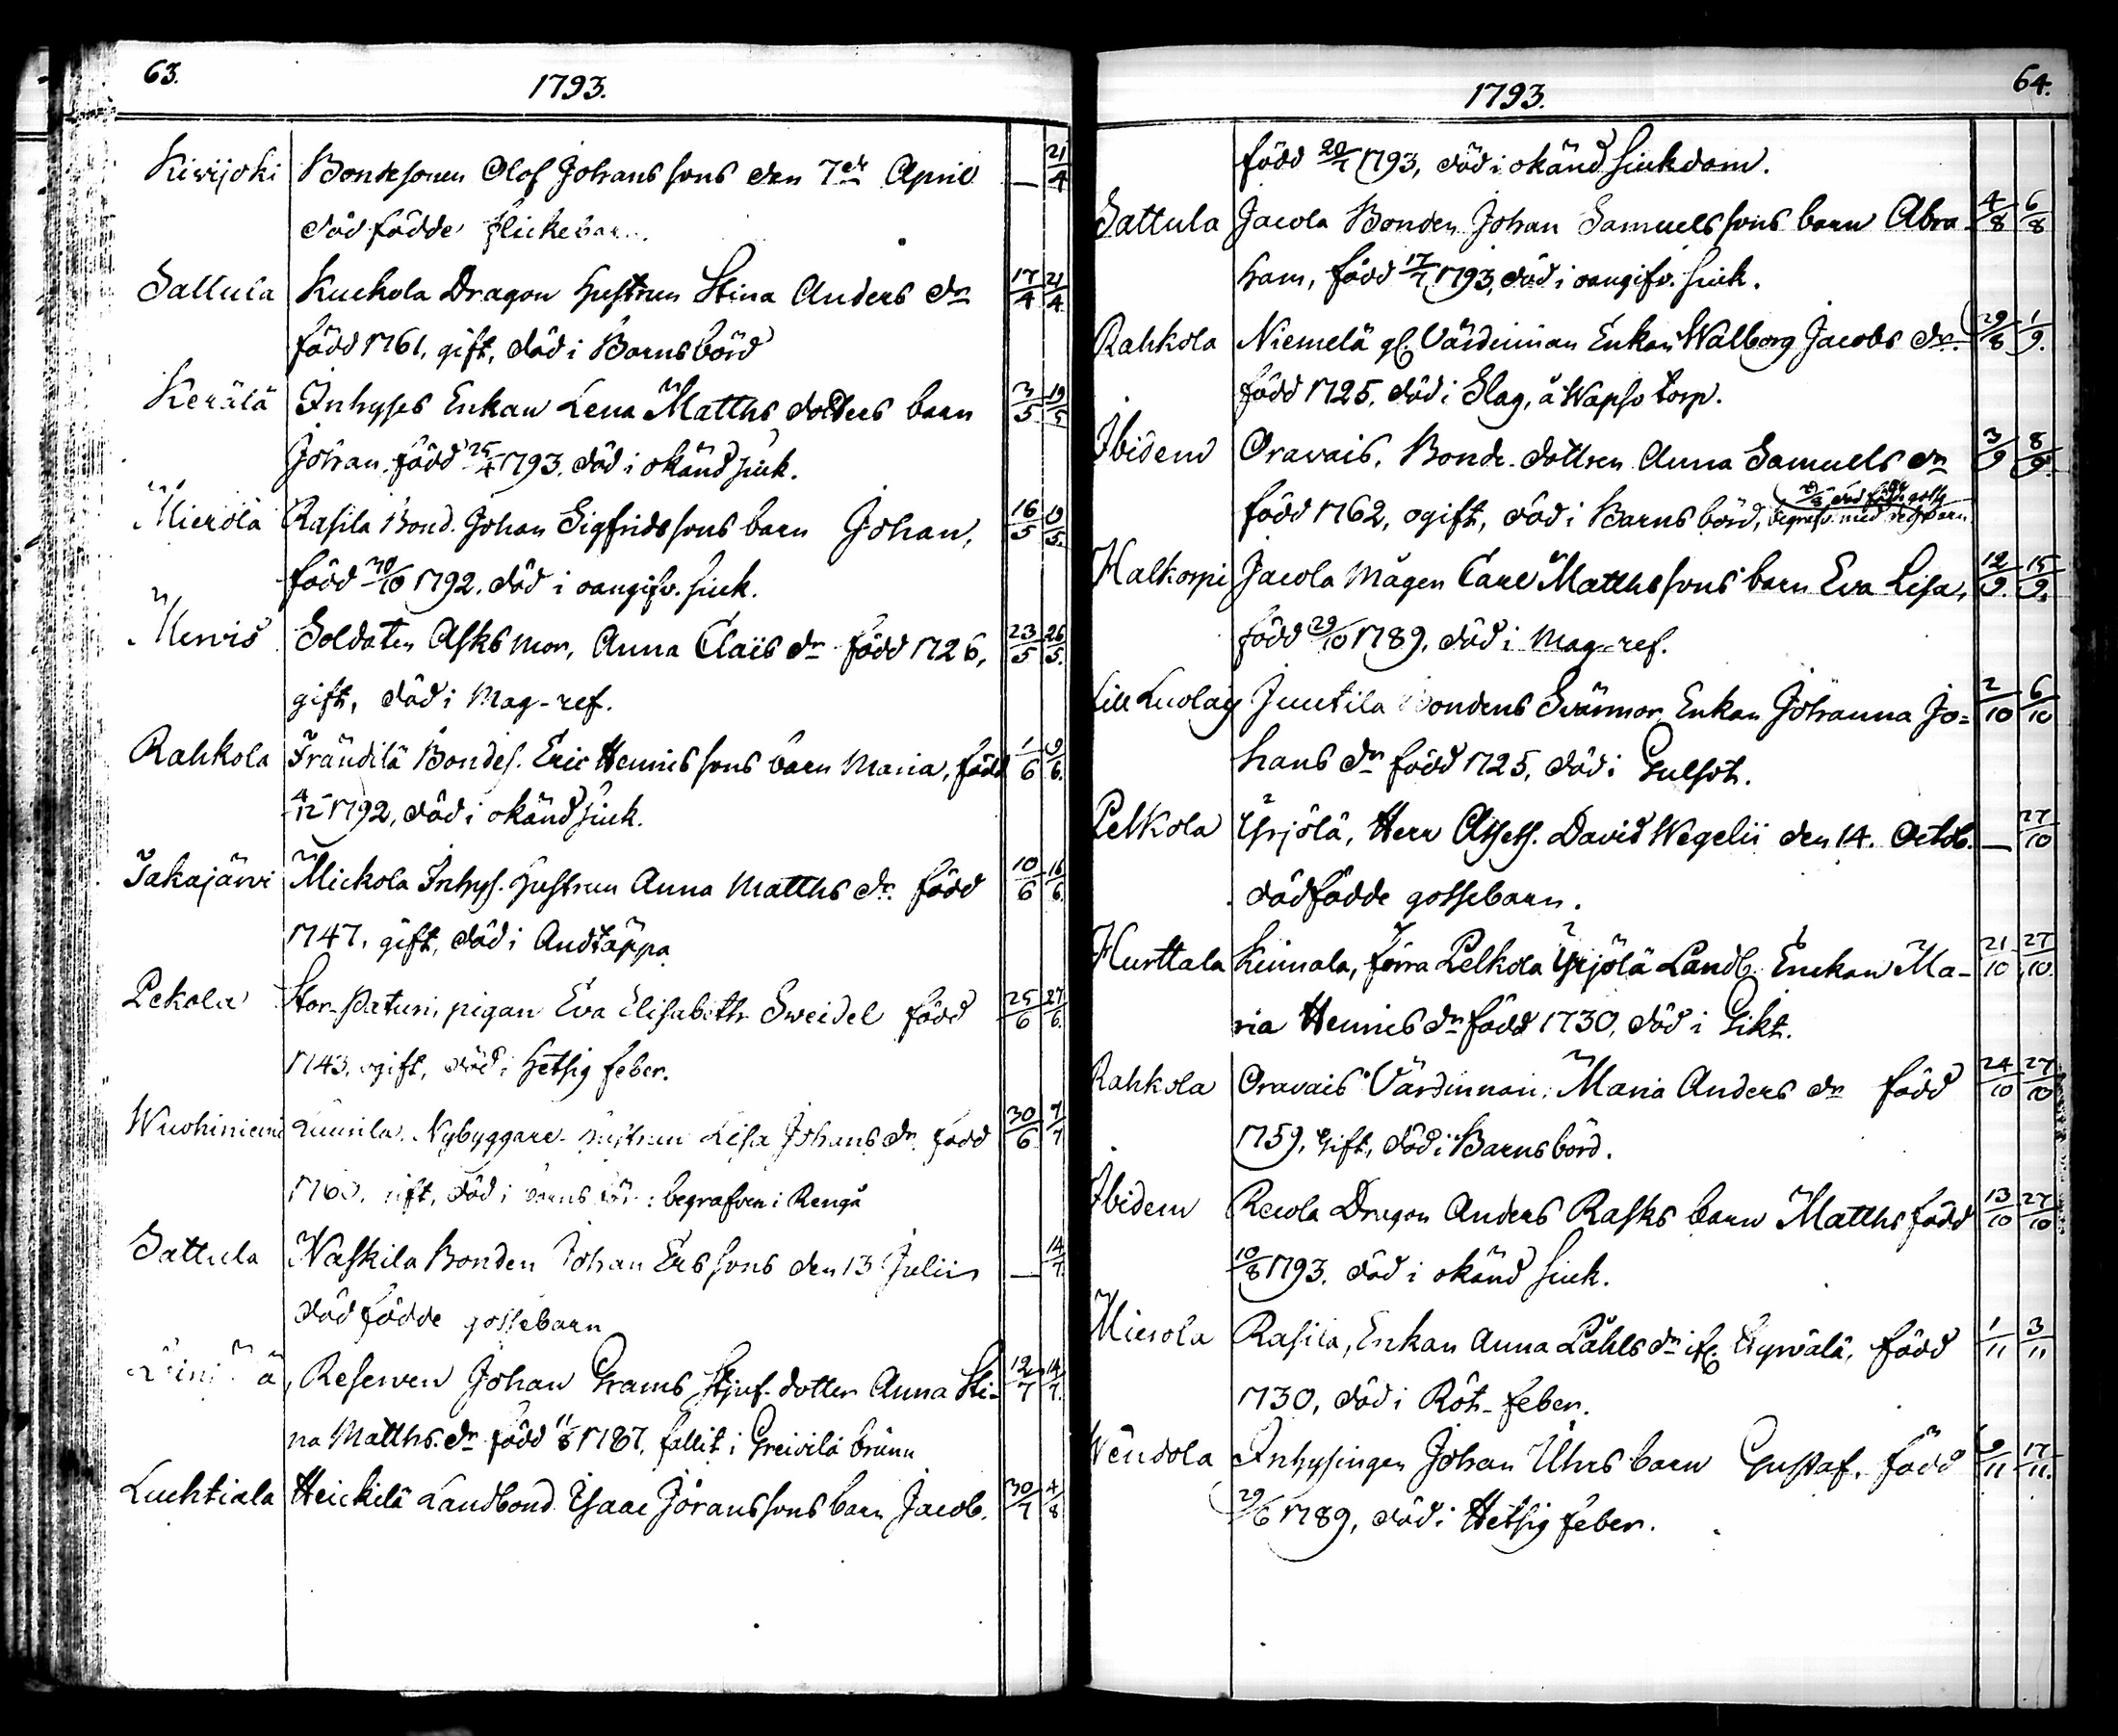 63.
1793.
Kirvijoki Bondesonen Olof Johans sons den 7de April — 21/4
död födde flickebarn.
Sattula Kuckola Dragon Hustrun Stina Anders dr 17/4 21/4
född 1761, gift, död i Barnsbörd
Kerälä Inhyses Enkan Lena Matths dotters barn 3/5 19/5
Johan född 25/4 1793. död i okänd siuk.
Mierola Rasila Bond. Johan Sigfrids sons barn Johan, 16/5 19/5.
född 30/10 1792. död i oangifv. siuk.
Mervis Soldaten Asks mor, Anna Clais dr född 1726, 23/5 26/5.
gift, död i Mag-ref.
Rahkola Frändilä Bondes. Eric Henrics sons barn Maria, född 1/6 9/6.
4/12 1792, död i okänd siuk.
Takajärvi Mickola Inhys. Hustrun Anna Matths dr. född 10/6 16/6.
1747. gift, död i Andtäppa
Pekola Stor-Paturi, pigan Eva Elisabeth Sweidel född 25/6 27/6.
1743. ogift, död i Hetsig feber.
Wuohiniemi Nybyggare-hustrun Lisa Johans dr. född 30/6 7/7
gift, död i begrafven i Rengå
Sattula Naskila Bonden Johan Ers sons den 13 Julii — 14/7
död födde gossebarn
Reserven Johan Grams Stjuf-dotter Anna Sti- 12/7 14/7.
na Matths. dr född 11/8 1787, fallit i Greivilä brunn
Luchtiala Heickilä Landbond. Isaac Jörans sons barn Jacob. 30/7 4/8
1793. 64.
född 20/7 1793, död i okänd siukdom.
Sattula Jacola Bonden Johan Samuels sons barn Abra- 4/8 6/8
ham, född 17/7 1793, död i oangifv. siuk.
Rahkola Niemelä gl. Värdinnan Enkan Walborg Jacobs dr. 29/8 1/9.
född 1725, död i Slag, å Wapso torp.
Ibidem Oravais. Bonde-dottren Anna Samuels dr 3/9 8/9.
född 1762, ogift, död i Barnsbörd,
Halkorpi Jacola Mågen Carl Matths sons barn Eva Lisa, 12/9. 15/9.
född 29/10 1789, död i Mag-ref.
Lill Luolaja Juutila Bondens Svärmor Enkan Johanna Jo= 2/10 6/10
hans dr född 1725, död i Gulsot.
Pelkola Yrjölä, Herr Assess. David Wegelii den 14. Octob. — 27/10
dödfödde gossebarn.
Hurttala Kiimala, förra Pelkola Yrjölä Landb. Enckan Ma- 21/10 27/10.
ria Henrics dr född 1730, död i Gikt.
Rahkola Oravais Värdinnan, Maria Anders dr född 24/10 27/10
1759, gift, död i Barnsbörd.
Ibidem Recola Dragon Anders Rasks barn Matths född 13/10 27/10
10/8 1793. död i okänd siuk.
Mierola Rasila, Enkan Anna Påhls dr ifr. Hyrvälä, född 1/11 3/11
1730, död i Röt-feber.
Inhysingen Johan Uhrs barn Gustaf. född 9/11 17/11.
29/6 1789, död i Hetsig feber.